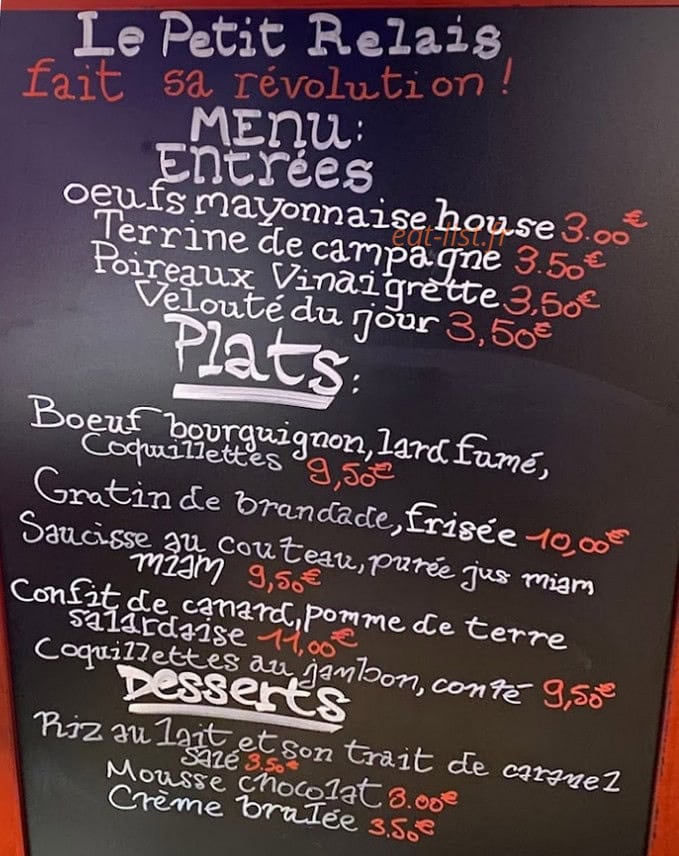 Le Petit Relais
fait sa révolution !
MEnu:
Entrées
oeufs mayonnaise house 3.00€
eat-list.fr
Terrine de campagne 3.50€
Poireaux Vinaigrette 3,50€
Velouté du jour 3,50€
Plats:
Boeuf bourguignon, lard fumé,
Coquillettes 9,50€
Gratin de brandade, frisée 10,00€
Saucisse au couteau, purée jus miam
miam 9,50€
Confit de canard, pomme de terre
salardaise 11,00€
Coquillettes au jambon, conté 9,50€
Desserts
Riz au lait et son trait de caramel
salé 3.50€
Mousse chocolat 3.00€
Crème brulée 3.50€